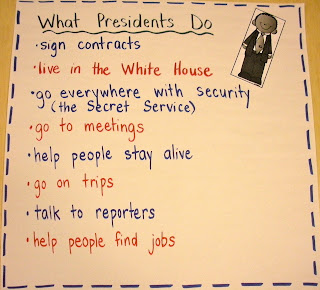 What Presidents Do
• sign contracts
• live in the White House
• go everywhere with security
(the Secret Service)
• go to meetings
• help people stay alive
• go on trips
• talk to reporters
• help people find jobs